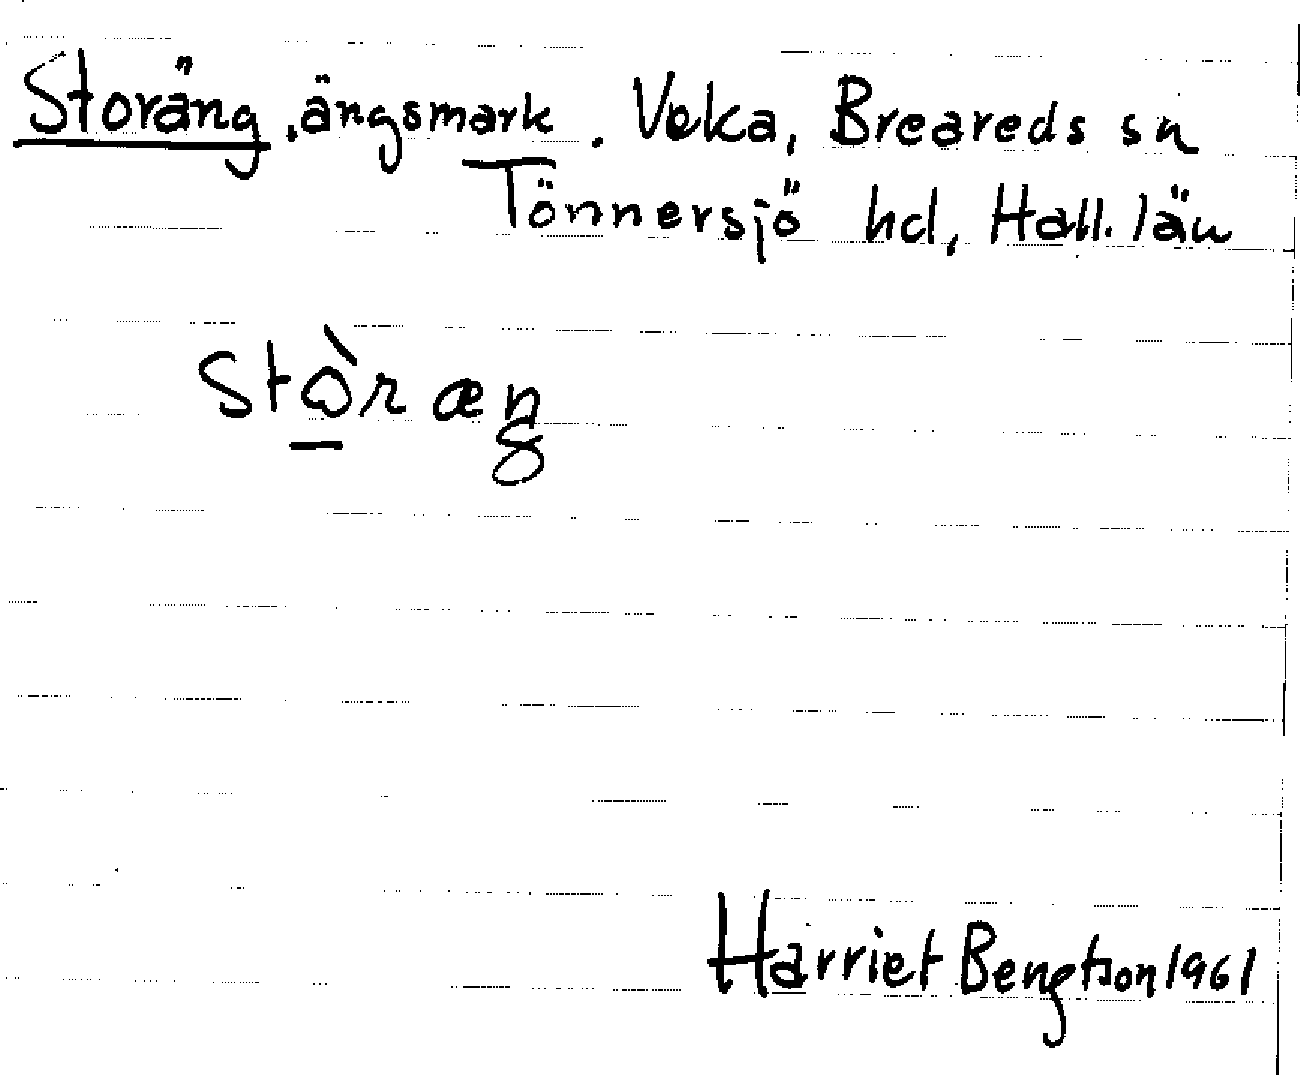 Storäng, ängsmark. Veka, Breareds sn
Tönnersjö hd, Hall. län
Stòræŋ
Harriet Bengtson 1961